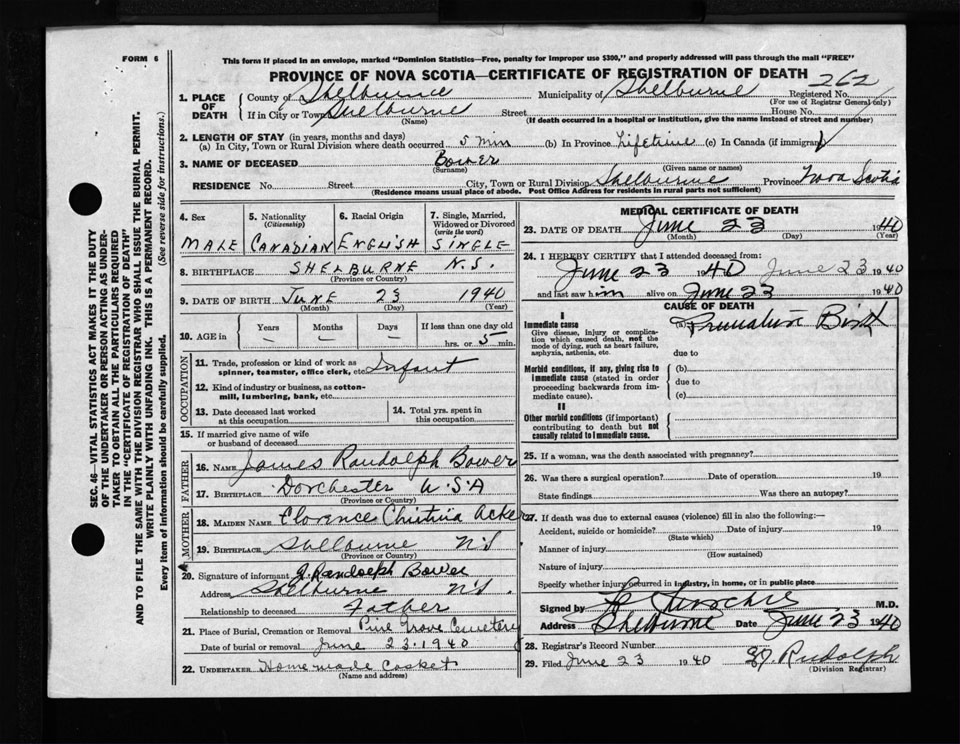 FORM 6
This form if placed in an envelope, marked "Dominion Statistics—Free, penalty for improper use $300," and properly addressed will pass through the mail "FREE"
PROVINCE OF NOVA SCOTIA—CERTIFICATE OF REGISTRATION OF DEATH
1. PLACE OF DEATH County of Shelburne Municipality of Shelburne Registered No. 262
(For use of Registrar General only)
If in City or Town Shelburne Street House No.
(Name) (If death occurred in a hospital or institution, give the name instead of street and number)
2. LENGTH OF STAY (in years, months and days)
(a) In City, Town or Rural Division where death occurred 5 min (b) In Province Lifetime (c) In Canada (if immigrant)
3. NAME OF DECEASED Bower
(Surname) (Given name or names)
RESIDENCE No. Street City, Town or Rural Division Shelburne Province Nova Scotia
(Residence means usual place of abode. Post Office Address for residents in rural parts not sufficient)
4. Sex 5. Nationality (Citizenship) 6. Racial Origin 7. Single, Married, Widowed or Divorced (write the word)
MALE CANADIAN ENGLISH SINGLE
8. BIRTHPLACE SHELBURNE N.S.
(Province or Country)
9. DATE OF BIRTH JUNE 23 1940
(Month) (Day) (Year)
10. AGE in Years Months Days If less than one day old
— — — hrs. or 5 min.
OCCUPATION
11. Trade, profession or kind of work as spinner, teamster, office clerk, etc. Infant
12. Kind of industry or business, as cotton-mill, lumbering, bank, etc.
13. Date deceased last worked at this occupation
14. Total yrs. spent in this occupation
15. If married give name of wife or husband of deceased
FATHER
16. NAME James Randolph Bower
17. BIRTHPLACE Dorchester U.S.A
(Province or Country)
MOTHER
18. MAIDEN NAME Florence Christina Acker
19. BIRTHPLACE Shelburne N.S
(Province or Country)
20. Signature of informant J. Randolph Bower
Address Shelburne N.S.
Relationship to deceased Father
21. Place of Burial, Cremation or Removal Pine Grove Cemetery
Date of burial or removal June 23 1940
22. UNDERTAKER Home made Casket
(Name and address)
MEDICAL CERTIFICATE OF DEATH
23. DATE OF DEATH June 23 1940
(Month) (Day) (Year)
24. I HEREBY CERTIFY that I attended deceased from:
June 23 1940 June 23 1940
and last saw him alive on June 23 1940
CAUSE OF DEATH
I
Immediate cause (a) Premature Birth
Give disease, injury or complication which caused death, not the mode of dying, such as heart failure, asphyxia, asthenia, etc.
due to
Morbid conditions, if any, giving rise to immediate cause (stated in order proceeding backwards from immediate cause).
(b)
due to
(c)
II
Other morbid conditions (if important) contributing to death but not causally related to immediate cause.
25. If a woman, was the death associated with pregnancy?
26. Was there a surgical operation? Date of operation 19
State findings Was there an autopsy?
27. If death was due to external causes (violence) fill in also the following:—
Accident, suicide or homicide? Date of injury 19
(State which)
Manner of injury
(How sustained)
Nature of injury
Specify whether injury occurred in industry, in home, or in public place
Signed by M.D.
Address Shelburne Date June 23 1940
28. Registrar's Record Number
29. Filed June 23 1940 Rudolph
(Division Registrar)
SEC. 46—VITAL STATISTICS ACT MAKES IT THE DUTY
OF THE UNDERTAKER OR PERSON ACTING AS UNDER-
TAKER TO OBTAIN ALL THE PARTICULARS REQUIRED
IN THE "CERTIFICATE OF REGISTRATION OF DEATH"
AND TO FILE THE SAME WITH THE DIVISION REGISTRAR WHO SHALL ISSUE THE BURIAL PERMIT.
WRITE PLAINLY WITH UNFADING INK. THIS IS A PERMANENT RECORD.
Every item of information should be carefully supplied. (See reverse side for instructions.)